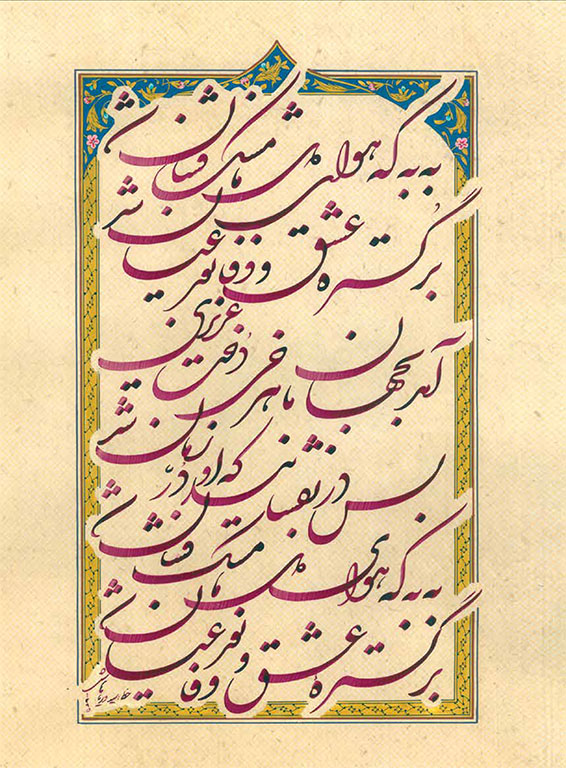 به به که هوای ما مشک فشان شد
بر گستره عشق و وفا نور عیان شد
آمد بجهان ماهرخی دخت عزیزی
بس در که او در زمان شد
به به که هوای ما مشک فشان شد
بر گستره عشق و وفا نور عیان شد